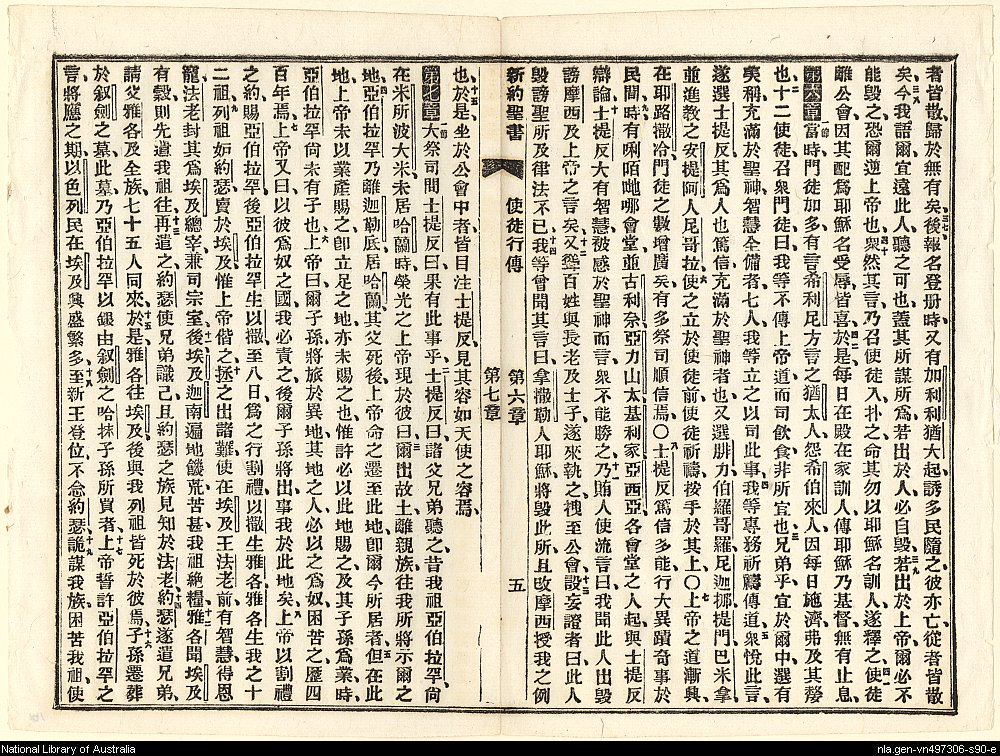 者皆散、歸於無有矣、後報名登册時、又有加利利猶大起、誘多民隨之、彼亦亡、從者皆散
矣、今我語爾、宜遠此人、聽之可也、蓋其所謀所爲、若出於人、必自毀、若出於上帝、爾必不
能毀之、恐爾逆上帝也、衆然其言、乃召使徒入、扑之、命其勿以耶穌名訓人、遂釋之、使徒
離公會、因其配爲耶穌名受辱皆喜、於是每日在殿在家、訓人傳耶穌乃基督、無有止息、
第六章 當時門徒加多、有言希利尼方言之猶太人、怨希伯來人、因每日施濟、弗及其嫠
也、十二使徒召衆門徒曰、我等不傳上帝道、而司飲食、非所宜也、兄弟乎、宜於爾中、選有
美稱、充滿於聖神、智慧全備者七人、我等立之以司此事、我等專務祈禱傳道、衆悅此言、
遂選士提反、其爲人也、篤信充滿於聖神者也、又選腓力伯羅哥羅尼迦挪提門巴米拿
並進教之安提阿人尼哥拉、使之立於使徒前、使徒祈禱、按手於其上〇上帝之道漸興、
在耶路撒冷門徒之數增廣矣、有多祭司順信焉〇士提反爲信多能、行大異蹟奇事於
民間、時有會堂、並古利奈亞力山太基利家亞西亞各會堂之人起、與士提反
辯論、士提反大有智慧、被感於聖神而言、衆不能勝之、乃賄人使流言曰、我聞此人出毀
謗摩西及上帝之言矣、又聳百姓與長老及士子、遂來執之、拽至公會、設妄證者曰、此人
毀謗聖所及律法不已、我等曾聞其言曰、拿撒勒人耶穌、將毀此所、且改摩西授我之例
新約聖書 使徒行傳 第六章 五
第七章
也、於是坐於公會中者、皆目注士提反、見其容如天使之容焉、
第七章 大祭司問士提反曰、果有此事乎、士提反曰、諸父兄弟聽之、昔我祖亞伯拉罕、尙
在米所波大米、未居哈蘭時、榮光之上帝現於彼曰、爾出故土、離親族、往我所將示爾之
地、亞伯拉罕乃離迦勒底、居哈蘭、其父死後、上帝命之遷至此地、卽爾今所居者、但在此
地、上帝未以業產賜之、卽立足之地、亦未賜之也、惟許必以此地賜之、及其子孫爲業、時
亞伯拉罕尙未有子也、上帝曰、爾子孫將旅於異地、其地之人、必以之爲奴、困苦之、歷四
百年焉、上帝又曰、以彼爲奴之國、我必責之、後爾子孫將出事我於此地矣、上帝以割禮
之約、賜亞伯拉罕、後亞伯拉罕生以撒、至八日、爲之行割禮、以撒生雅各、雅各生我之十
二祖、列祖妬約瑟、賣於埃及、惟上帝偕之、拯之出諸難、使在埃及王法老前、有智慧、得恩
寵、法老封其爲埃及總宰、兼司宗室、後埃及迦南遍地饑荒苦甚、我祖絕糧、雅各聞埃及
有穀、則先遣我祖往、再遣之、約瑟使兄弟識己、且約瑟之族見知於法老、約瑟遂遣兄弟、
請父雅各、及全族七十五人同來、於是雅各往埃及、後與我列祖皆死於彼焉、子孫遷葬
於叙劍之墓、此墓乃亞伯拉罕以銀由叙劍之哈抹子孫所買者、上帝誓許亞伯拉罕之
言、將應之期、以色列民在埃及興盛繁多、至新王登位、不念約瑟、詭謀我族、困苦我祖、使
National Library of Australia
nla.gen-vn497306-s90-e